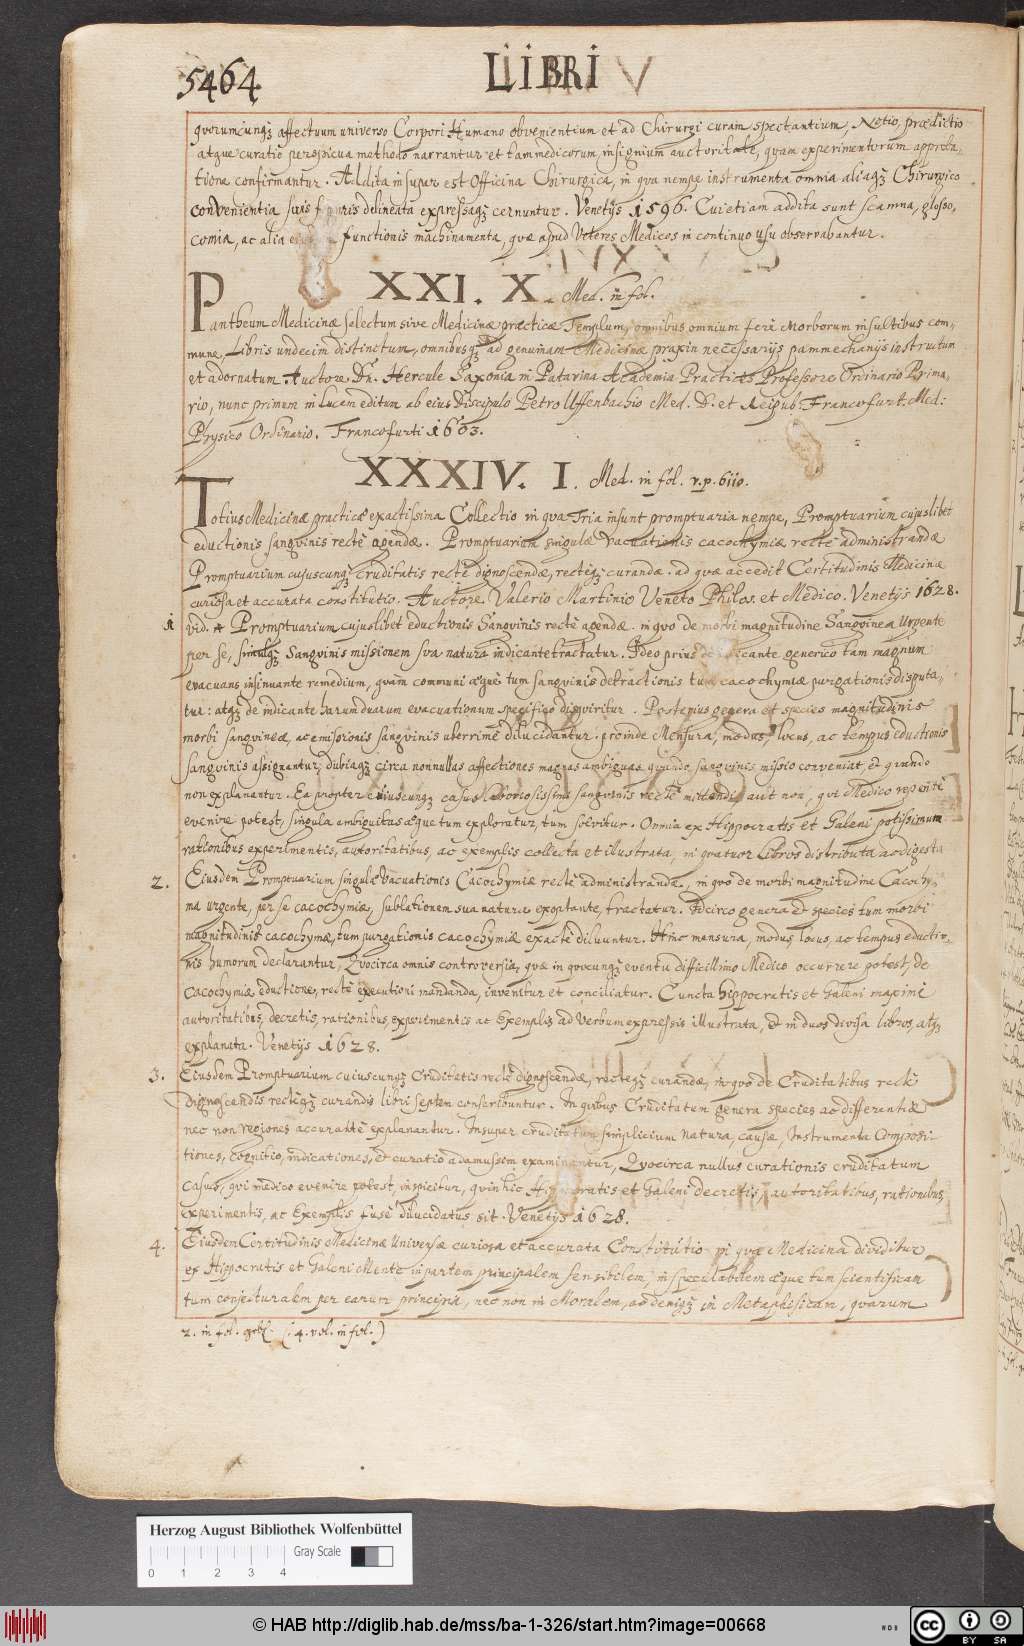 5464.
LIBRI
qvorumcunq; affectuum universo Corpori Humano obvenientium et ad Chirurgi curam spectantium, Notio, prædictio
atque curatio perspicua methodo narrantur et tam medicorum, insignium auctoritate, qvam experimentorum approba-
tione confirmantur. Addita insuper est Officina Chirurgica, in qva nempe instrumenta omnia aliaq; Chirurgico
convenientia suis figuris delineata expressaq; cernuntur. Venetijs 1596. Cui etiam addita sunt scamna, glosso-
comia, ac alia functionis machinamenta, qvæ apud Veteres Medicos in continuo usu observabantur.
XXI. X. Med. in fol.
Pantheum Medicinæ selectum sive Medicinæ practicæ Templum, omnibus omnium fere Morborum insultibus com-
mune, Libris undecim distinctum, omnibusq; ad genuinam Medicinæ praxin necessarijs pammechanijs instructum
et adornatum. Auctore Dn. Hercule Saxonia in Patavina Academia Practices Professore Ordinario Prima-
rio, nunc primum in Lucem editum ab eius Discipulo Petro Uffenbachio Med. D. et Reipub. Francofurt. Med:
Physico Ordinario. Francofurti 1603.
XXXIV. I. Med. in fol. v. p. 6110.
Totius Medicinæ practicæ exactissima Collectio in qva Tria insunt promptuaria nempe, Promptuarium cujuslibet
eductionis sangvinis rectè agendæ. Promptuarium singulæ vacuationis cacochymiæ rectè administrandæ
Promptuarium cujuscunq; cruditatis rectè dignoscendæ, rectèq; curandæ. ad qvæ accedit Certitudinis Medicinæ
curiosa et accurata constitutio. Auctore Valerio Martinio Veneto Philos. et Medico. Venetijs 1628.
1 vid. Promptuarium cujuslibet eductionis Sangvinis rectè agendæ. in qvo de morbi magnitudine Sangvinea Urgente
per se, simulq; Sangvinis missionem sva natura indicante tractatur. Ideo prius de indicante generico tam magnum
evacuans insinuante remedium, qvàm communi æquè tum sangvinis detractionis tum cacochymiæ purgationis disputa-
tur: atq; de indicante harum duarum evacuationum specifico disqviritur. Posterius genera et species magnitudinis
morbi sangvineæ, ac emissionis sangvinis uberrimè dilucidantur. proinde Mensura, modus, locus, ac tempus eductionis
sangvinis assignantur, dubiaq; circa nonnullas affectiones magnas ambiguas, qvando sangvinis missio conveniat, et qvando
non explanantur. Ea propter cujuscunq; casus laboriosissimi sangvinis rectè mittendi aut non, qvi Medico repentè
evenire potest, singula ambiguitas æque tum exploratur, tum solvitur. Omnia ex Hippocratis et Galeni potissimum
rationibus experimentis, autoritatibus, ac exemplis collecta et illustrata, in qvatuor Libros distributa ac digesta
2. Eiusdem Promptuarium singulæ Vacuationis Cacochymiæ rectè administrandæ, in qvo de morbi magnitudine Cacochy-
ma urgente, per se cacochymiæ, sublationem sua natura exoptante, tractatur. Idcirco genera et species tum morbi
magnitudinis cacochymæ, tum purgationis cacochymiæ exactè diluuntur. Hinc mensura, modus, locus, ac tempus eductio-
nis humorum declarantur, Qvocirca omnis controversia, qvæ in qvocunq; eventu difficillimo Medico occurrere potest, de
cacochymiæ eductione, rectè executioni mandanda, invenitur et conciliatur. Cuncta Hippocratis et Galeni maximè
autoritatibus, decretis, rationibus, experimentis ac Exemplis ad verbum expressis illustrata, et in duos divisa libros, atq;
explanata. Venetijs 1628.
3. Eiusdem Promptuarium cuiuscunq; Cruditatis rectè dignoscendæ, rectèq; curandæ, in qvo de Cruditatibus rectè
dignoscendis rectèq; curandis libri septem conscribuntur. In qvibus Cruditatum genera species ac differentiæ
nec non regiones accuratè explanantur. Insuper cruditatum simplicium Natura, causæ, Instrumenta Composi-
tiones, cognitio, indicationes, et curatio adamussim examinantur, Qvocirca nullus curationis cruditatum
casus, qvi medico evenire potest, inspicitur, qvin hic Hippocratis et Galeni decretis, autoritatibus, rationibus,
experimentis, ac Exemplis fusè dilucidatus sit. Venetijs 1628.
4. Eiusdem Certitudinis Medicinæ Universæ curiosa et accurata Constitutio in qvæ Medicina dividitur
ex Hippocratis et Galeni Mente in partem principalem sensibilem, in speculabilem æque tum scientificam
tum conjecturalem per earum principia, nec non in Moralem, ac deniq; in Metaphisicam, qvarum
2. in fol. gebl. (: 4. vol. in fol. )
Herzog August Bibliothek Wolfenbüttel
Gray Scale
0 1 2 3 4
© HAB http://diglib.hab.de/mss/ba-1-326/start.htm?image=00668
cc BY SA